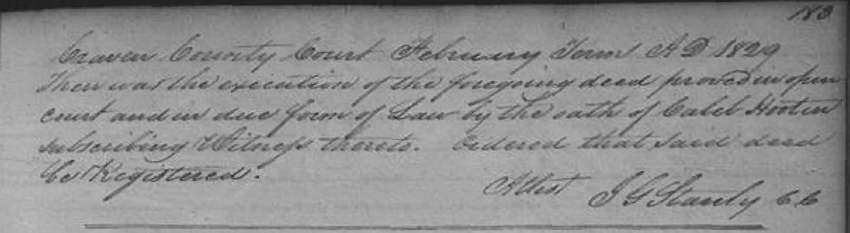 183
Craven County Court February Term A D 1829
Then was the execution of the foregoing deed proved in open
court and in due form of Law by the oath of Caleb Hooten
subscribing Witness thereto. Ordered that said deed
be Registered.
Attest J G Stanly C C